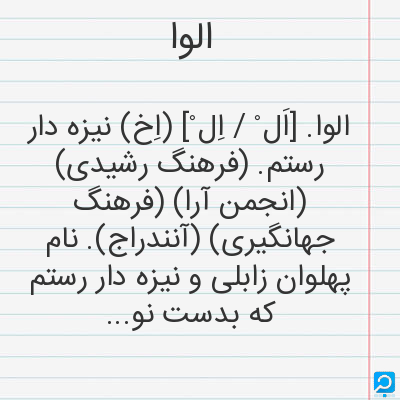 الوا
الوا. [اَل ْ / اِل ْ] (اِخ) نیزه دار
رستم. (فرهنگ رشیدی)
(انجمن آرا) (فرهنگ
جهانگیری) (آنندراج). نام
پهلوان زابلی و نیزه دار رستم
که بدست نو...